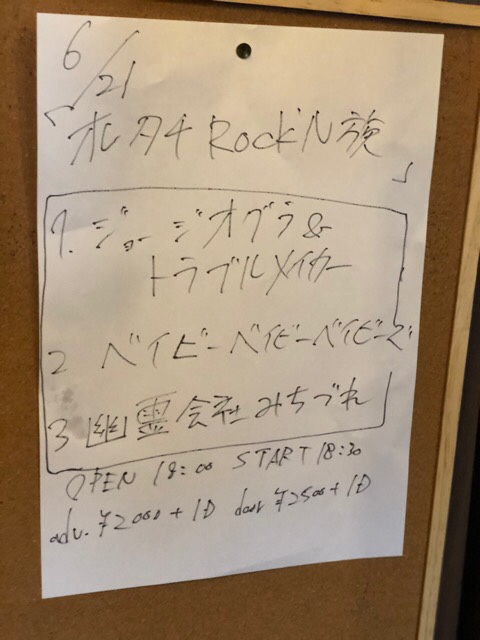 6/21
「オレタチRock'N族」
1. ジョージオブラ&
トラブルメイカー
2 ベイビーベイビーベイビーズ
3 幽霊会社みちづれ
OPEN 18:00 START 18:30
adv. ¥2000+1D door ¥2500+1D